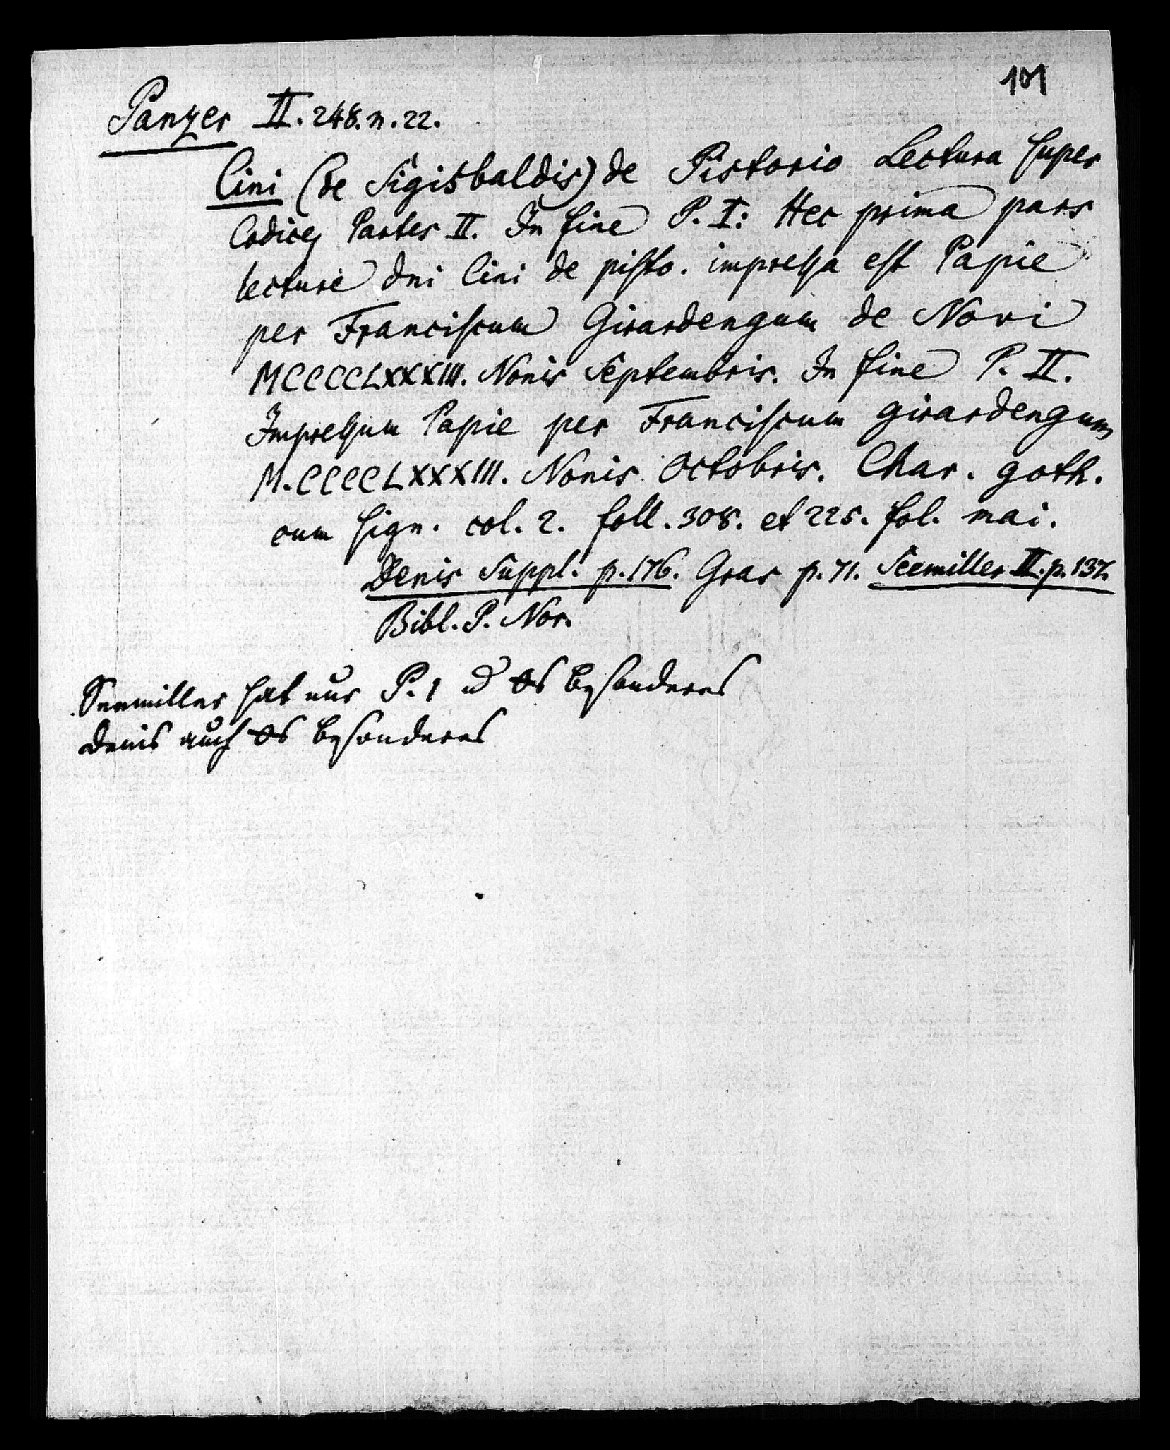 101
Panzer II. 248. n. 22.
Cini (de Sigisbaldis) de Pistorio Lectura super
Codice Partes II. In fine P. I: Hec prima pars
lecture dni Cini de pisto. impressa est Papie
per Franciscum Girardengum de Novi
MCCCCLXXXIII. Nonis Septembris. In fine P. II.
Impressum Papie per Franciscum girardengum
M.CCCCLXXXIII. Nonis Octobris. Char. goth.
cum sign. col. 2. foll. 308. et 225. fol. mai.
Denis Suppl. p. 176. Gras p. 71. Seemiller II. p. 137.
Bibl. P. Nor.
Seemiller hat nur P. 1 besonderes
Denis auch besonderes